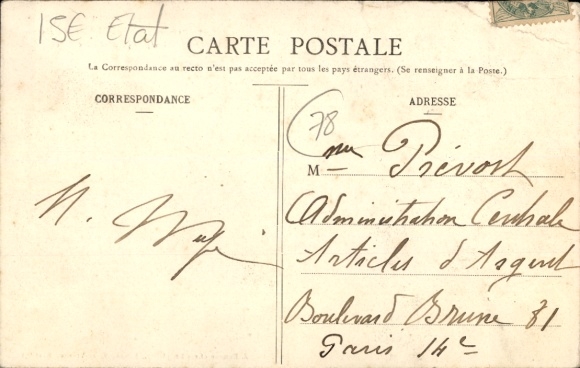 15E Etat
CARTE POSTALE
La Correspondance au recto n'est pas acceptée par tous les pays étrangers. (Se renseigner à la Poste.)
CORRESPONDANCE
ADRESSE
78
M me Prévost
Administration Centrale
Articles d'Argent
Boulevard Brune 81
Paris 14e